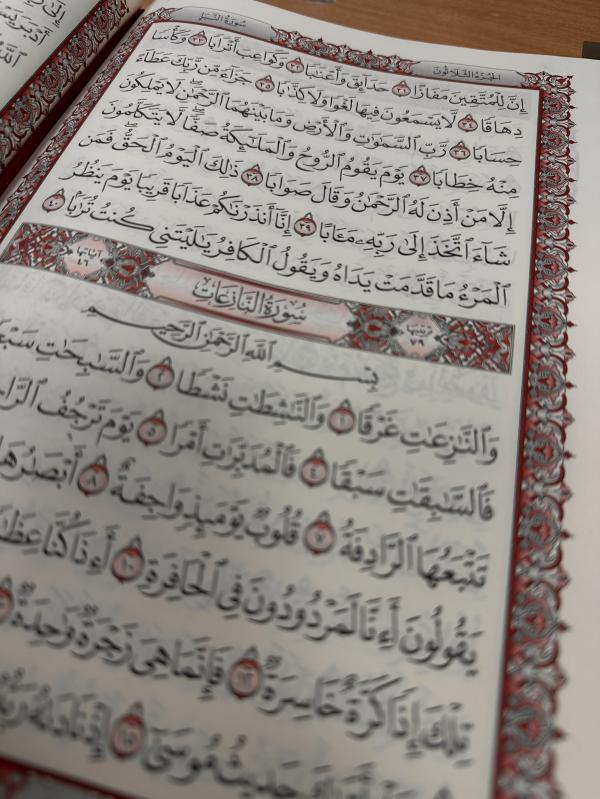 سورة النبإ
الجزء الثلاثون
إِنَّ لِلْمُتَّقِينَ مَفَازًا ٣١ حَدَآئِقَ وَأَعْنَٰبًا ٣٢ وَكَوَاعِبَ أَتْرَابًا ٣٣ وَكَأْسًا
دِهَاقًا ٣٤ لَّا يَسْمَعُونَ فِيهَا لَغْوًا وَلَا كِذَّٰبًا ٣٥ جَزَآءً مِّن رَّبِّكَ عَطَآءً
حِسَابًا ٣٦ رَّبِّ ٱلسَّمَٰوَٰتِ وَٱلْأَرْضِ وَمَا بَيْنَهُمَا ٱلرَّحْمَٰنِ لَا يَمْلِكُونَ
مِنْهُ خِطَابًا ٣٧ يَوْمَ يَقُومُ ٱلرُّوحُ وَٱلْمَلَٰٓئِكَةُ صَفًّا لَّا يَتَكَلَّمُونَ
إِلَّا مَنْ أَذِنَ لَهُ ٱلرَّحْمَٰنُ وَقَالَ صَوَابًا ٣٨ ذَٰلِكَ ٱلْيَوْمُ ٱلْحَقُّ فَمَن
شَآءَ ٱتَّخَذَ إِلَىٰ رَبِّهِۦ مَـَٔابًا ٣٩ إِنَّآ أَنذَرْنَٰكُمْ عَذَابًا قَرِيبًا يَوْمَ يَنظُرُ
ٱلْمَرْءُ مَا قَدَّمَتْ يَدَاهُ وَيَقُولُ ٱلْكَافِرُ يَٰلَيْتَنِى كُنتُ تُرَٰبًۢا ٤٠
ترتيبها ٧٩ سُورَةُ النَّازِعَاتِ آياتها ٤٦
بِسْمِ ٱللَّهِ ٱلرَّحْمَٰنِ ٱلرَّحِيمِ
وَٱلنَّٰزِعَٰتِ غَرْقًا ١ وَٱلنَّٰشِطَٰتِ نَشْطًا ٢ وَٱلسَّٰبِحَٰتِ
فَٱلسَّٰبِقَٰتِ سَبْقًا ٤ فَٱلْمُدَبِّرَٰتِ أَمْرًا ٥ يَوْمَ تَرْجُفُ
تَتْبَعُهَا ٱلرَّادِفَةُ ٧ قُلُوبٌ يَوْمَئِذٍ وَاجِفَةٌ ٨ أَبْصَٰرُهَا
يَقُولُونَ أَءِنَّا لَمَرْدُودُونَ فِى ٱلْحَافِرَةِ ١٠ أَءِذَا كُنَّا
تِلْكَ إِذًا كَرَّةٌ خَاسِرَةٌ ١٢ فَإِنَّمَا هِىَ زَجْرَةٌ وَٰحِدَةٌ
حَدِيثُ مُوسَىٰٓ ١٥ إِذْ نَادَىٰهُ